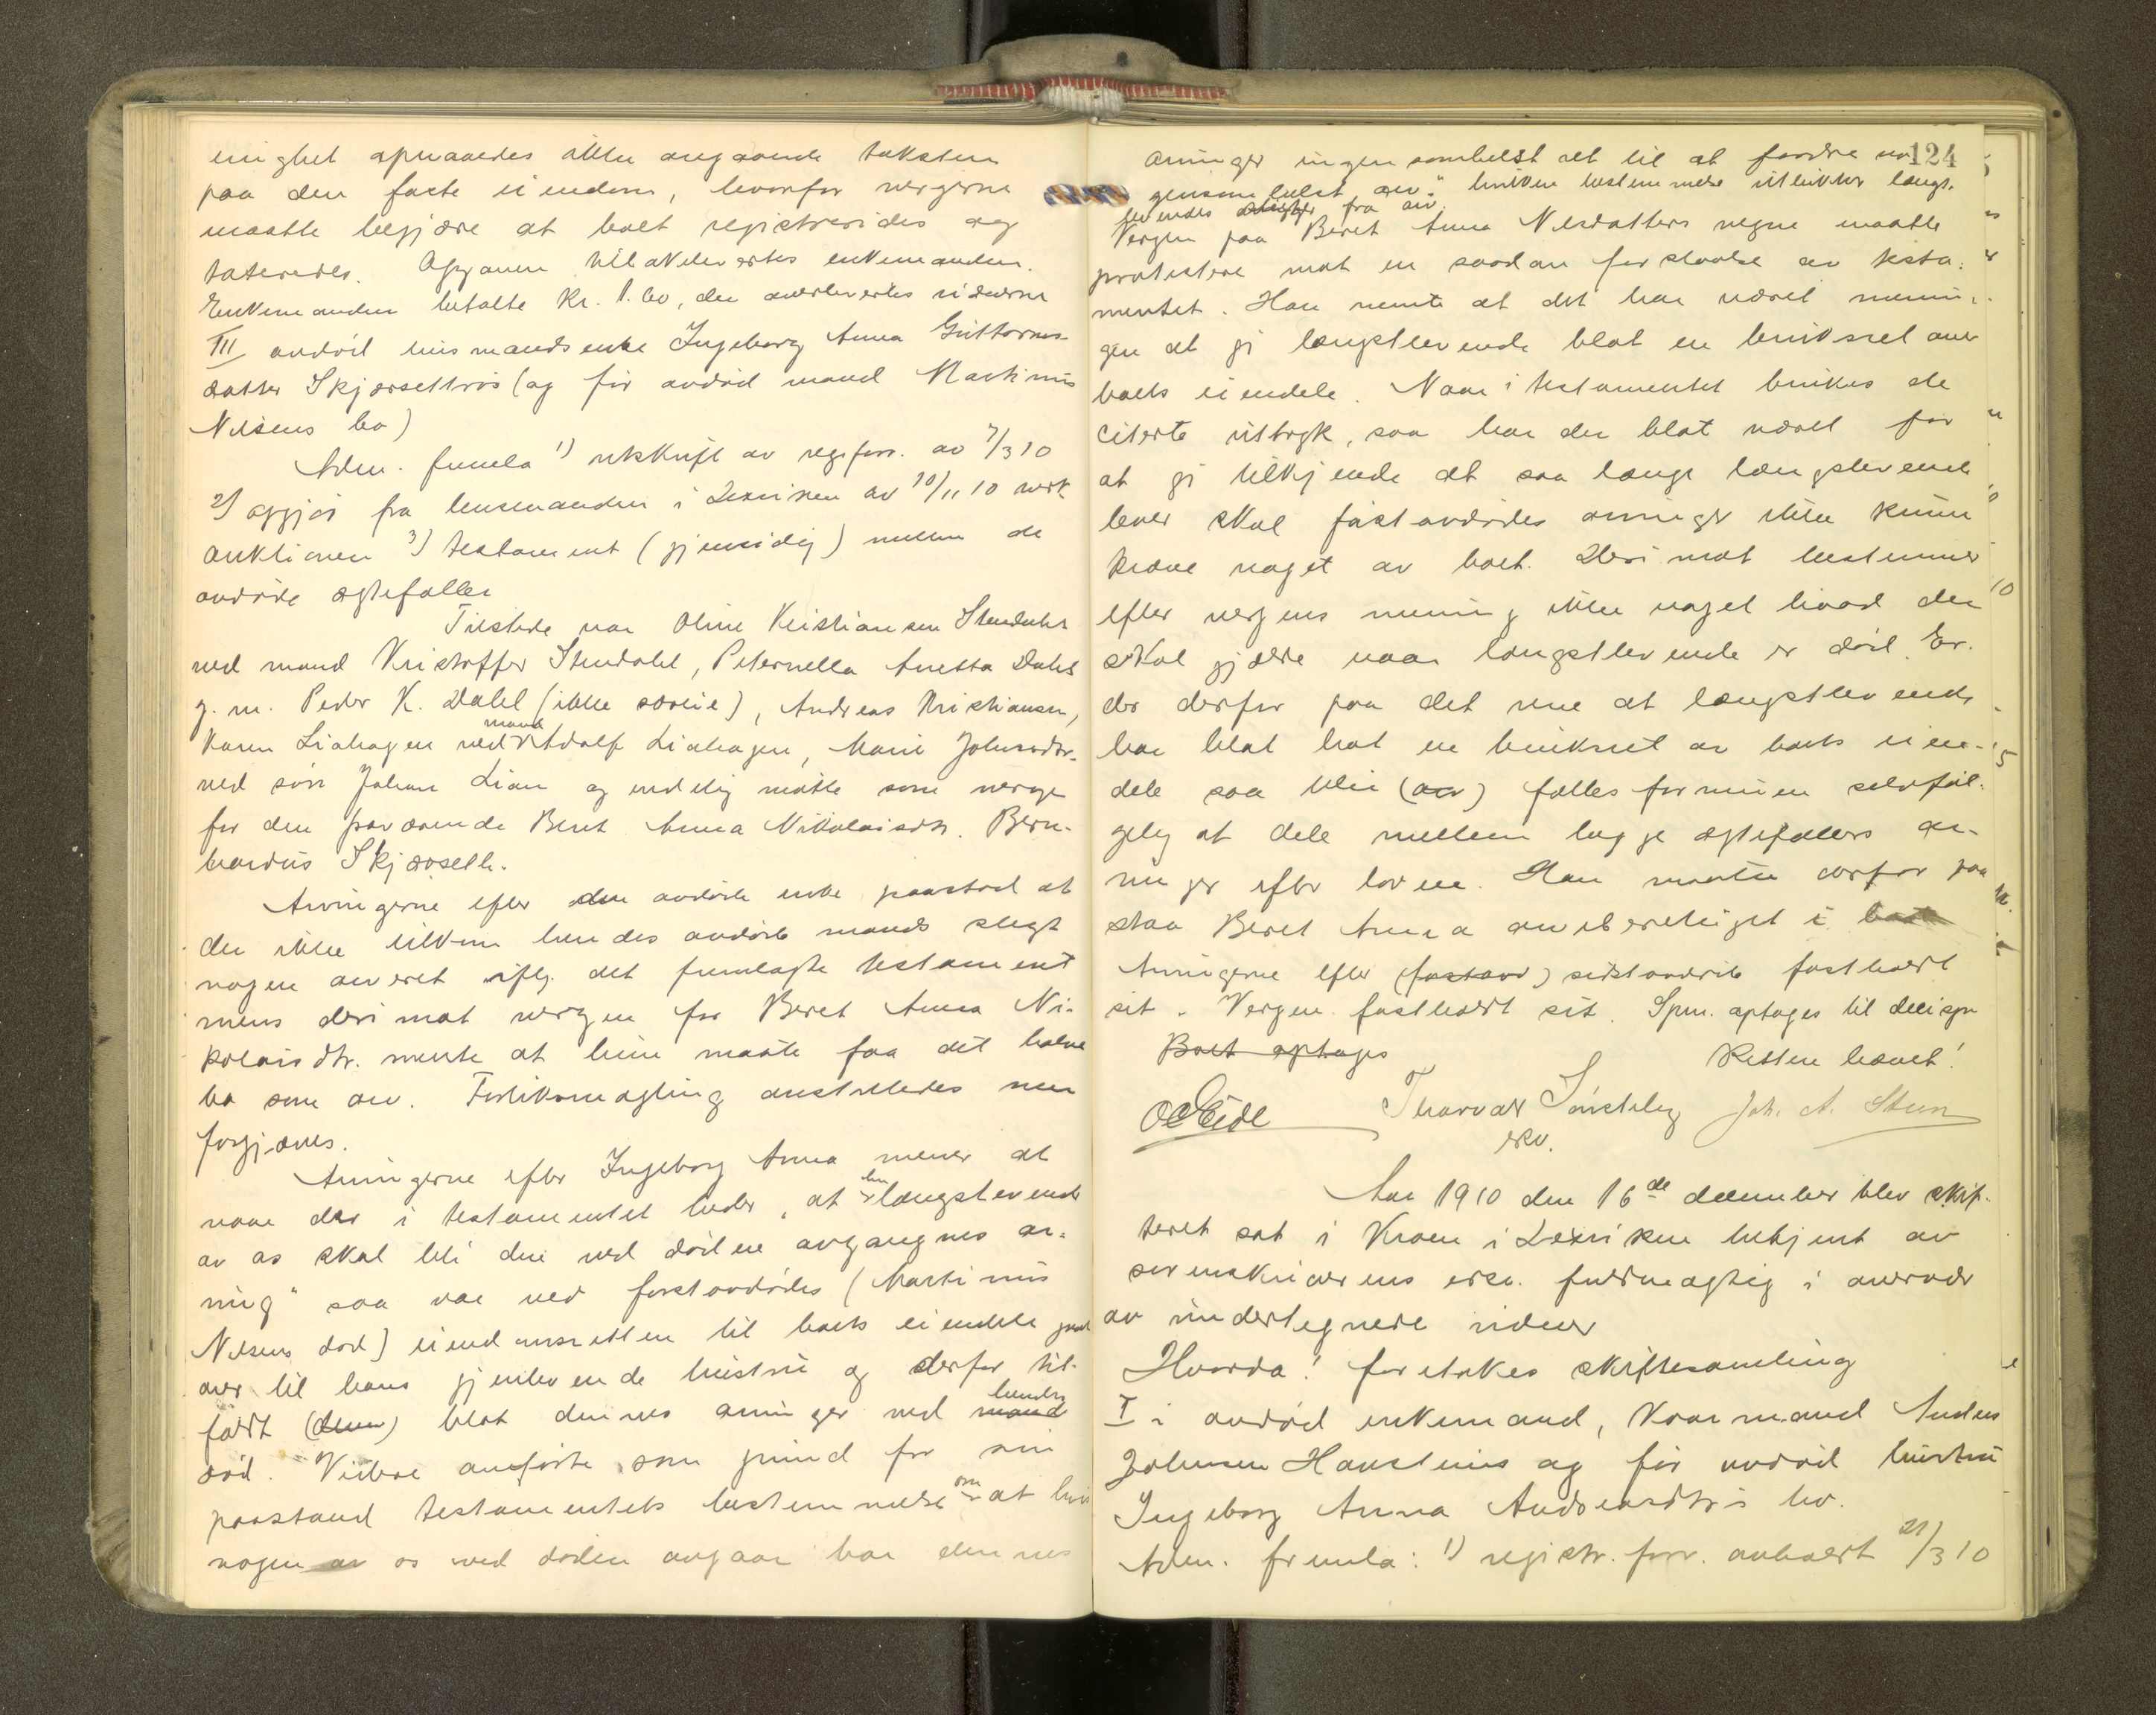 enighet opnaaedes ikke angaaende taksten
paa den faste eiendom, hvorfor vergerne
maatte begjære at boet registreredes og
taxeredes. Opgaven tilbakelevertes enkemanden.
Enkemanden betalte kr. 1.60, der overlevertes vidnerne
III avdöd husmandsenke Ingeborg Anna Guttorms-
datter Skjærsettrös (og för avdöd mand Martinus
Nilsens bo)
Adm. fremla 1) utskrift av reg.forr. av 7/3 10
2) opgjör fra lensmanden i Lexviken av 10/11 10 vedk.
auktionen 3) testament (gjensidig) mellem de
avdöde ægtefæller
Tilstede var Oline Kristiansen Stendahl
ved mand Kristoffer Stendahl, Peternella Anetta Dahl
g. m. Peder K. Dahl (ikke særeie), Andreas Kristiansen,
Karen Liahagen ved mand Adolf Liahagen, Marie Johnsdtr.
ved sön Johan Lian og endelig mötte som verge
for den fraværende Beret Anna Nikolaisdtr. Bern-
hardus Skjærseth.
Arvingerne efter den avdöde enke paastod at
der ikke tilkom hendes avdöde mands slegt
nogen arveret iflg. det fremlagte testament
mens derimot vergen for Beret Anna Ni-
kolaisdtr. mente at hun maatte faa det halve
bo som arv. Forliksmægling anstilledes men
forgjæves.
Arvingerne efter Ingeborg Anna mener at
naar der i testamentet heder, at den længstlevende
av os skal bli den ved döden avgangnes ar-
ving" saa var ved förstavdödes (Martinus
Nilsens död) eiendomsretten til boets eiendele gaat
over til hans gjenlevende hustru og derfor til-
faldt (denn) blot dennes arvinger ved mand hendes
död. Videre anförte som grund for sin
paastand testamentets bestemmelse om at hvis
nogen av os ved döden avgaar har dennes
124
arvinger ingensomhelst ret til at fordre no-
gensomhelst arv." hvilken bestemmelse utelukker længst-
levendes slegter fra arv.
Vergen paa Beret Anna Nilsdatters vegne maatte
protestere mot en saadan forstaaelse av testa-
mentet. Han mente at det har været menin-
gen at gi længstlevende blot en bruksret over
boets eiendele. Naar i testamentet brukes de
citerte uttryk, saa har det blot været for
at gi tilkjende at saa længe længstlevende
lever skal förstavdödes arvinger ikke kunne
kræve noget av boet. Derimot bestemmer
efter vergens mening ikke noget hvad der
skal gjælde naar længstlevende er död. Er
der derfor paa det rene at længstlevende
har blot hat en bruksret av boets eien-
dele saa blir (arv) fællesformuen selvföl-
gelig at dele mellem begge ægtefællers ar-
vinger efter loven. Han maatte derfor paa-
staa Beret Anna arveberettiget i boet
Arvingerne efter (förstavd) sidstavdöde fastholdt
sit. Vergen fastholdt sit. Spm. optages til decision
Boet optages Retten hævet!
O Eide Thorvald Sönsteby Joh. A. Steen
eds.
Aar 1910 den 16de december blev skif-
teret sat i Kroen i Lexviken betjent av
sorenskriverens edsv. fuldmægtig i overvær
av undertegnede vidner
Hvorda! foretokes skiftesamling
I i avdöd enkemand, kaarmand Anders
Johnsen Hansteins og för avdöd hustru
Ingeborg Anna Andreasdtr's bo.
Adm. fremla: 1) registr. forr. avholdt 21/3 10